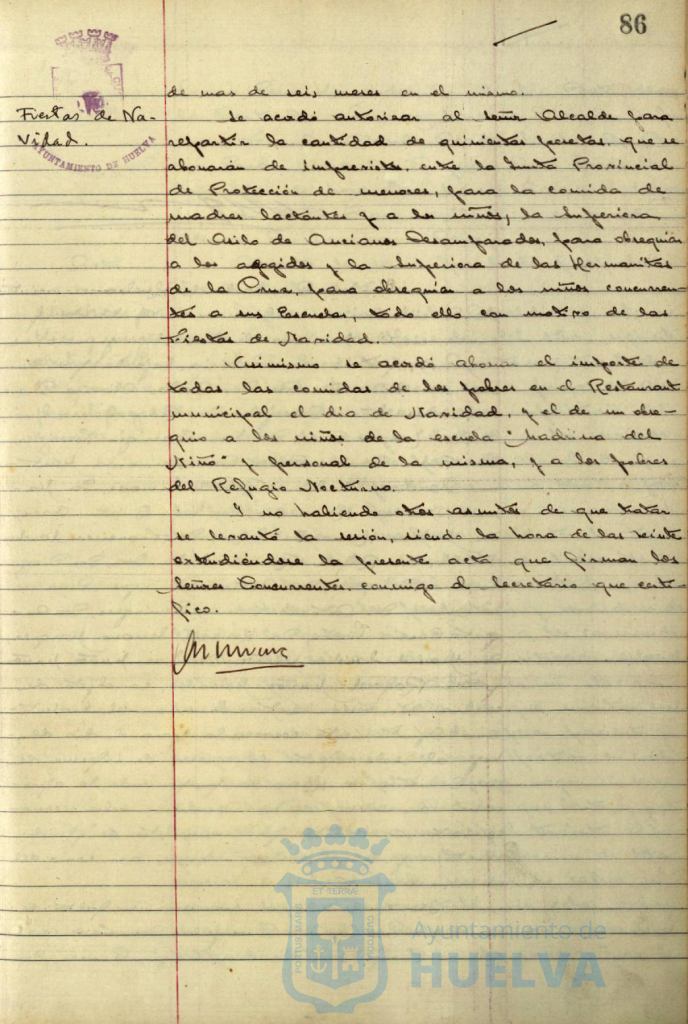 86
de mas de seis meses en el mismo.
Fiestas de Na-
vidad.
AYUNTAMIENTO DE HUELVA
Se acordó autorizar al señor Alcalde para
repartir la cantidad de quinientas pesetas, que se
abonarán de imprevistos, entre la Junta Provincial
de Protección de menores, para la comida de
madres lactantes y a los niños, la Superiora
del Asilo de Ancianos Desamparados, para obsequiar
a los acogidos y la Superiora de las Hermanitas
de la Cruz, para obsequiar a los niños concurren-
tes a sus Escuelas, todo ello con motivo de las
Fiestas de Navidad.
Asimismo se acordó abonar el importe de
todas las comidas de los pobres en el Restaurant
municipal el dia de Navidad, y el de un obse-
quio a los niños de la escuela "Madrina del
Niño" y personal de la misma, y a los pobres
del Refugio Nocturno.
Y no habiendo otros asuntos de que tratar
se levantó la sesión, siendo la hora de las veinte
extendiéndose la presente acta que firman los
señores Concurrentes, conmigo el Secretario que certi-
fico.
ET TERRAE
PORTUS MARIS
CUSTODIA
Ayuntamiento de
HUELVA